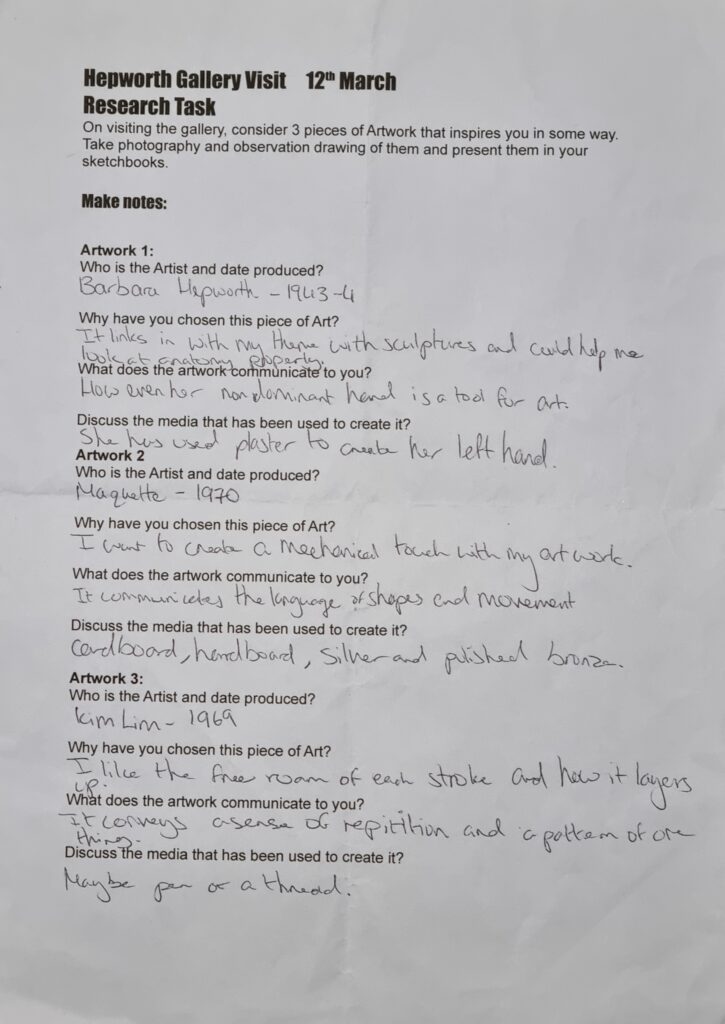 Hepworth Gallery Visit 12th March
Research Task
On visiting the gallery, consider 3 pieces of Artwork that inspires you in some way.
Take photography and observation drawing of them and present them in your
sketchbooks.
Make notes:
Artwork 1:
Who is the Artist and date produced?
Barbara Hepworth - 1943-4
Why have you chosen this piece of Art?
It links in with my theme with sculptures and could help me
look at anatomy property.
What does the artwork communicate to you?
How even her non dominant hand is a tool for art.
Discuss the media that has been used to create it?
She has used plaster to create her left hand.
Artwork 2
Who is the Artist and date produced?
Maquette - 1970
Why have you chosen this piece of Art?
I want to create a mechanical touch with my art work.
What does the artwork communicate to you?
It communicates the language of shapes and movement
Discuss the media that has been used to create it?
Cardboard, hardboard, silver and polished bronze.
Artwork 3:
Who is the Artist and date produced?
Kim Lim - 1969
Why have you chosen this piece of Art?
I like the free roam of each stroke and how it layers
up.
What does the artwork communicate to you?
It conveys a sense of repitition and a pattern of one
thing.
Discuss the media that has been used to create it?
Maybe pen or a thread.